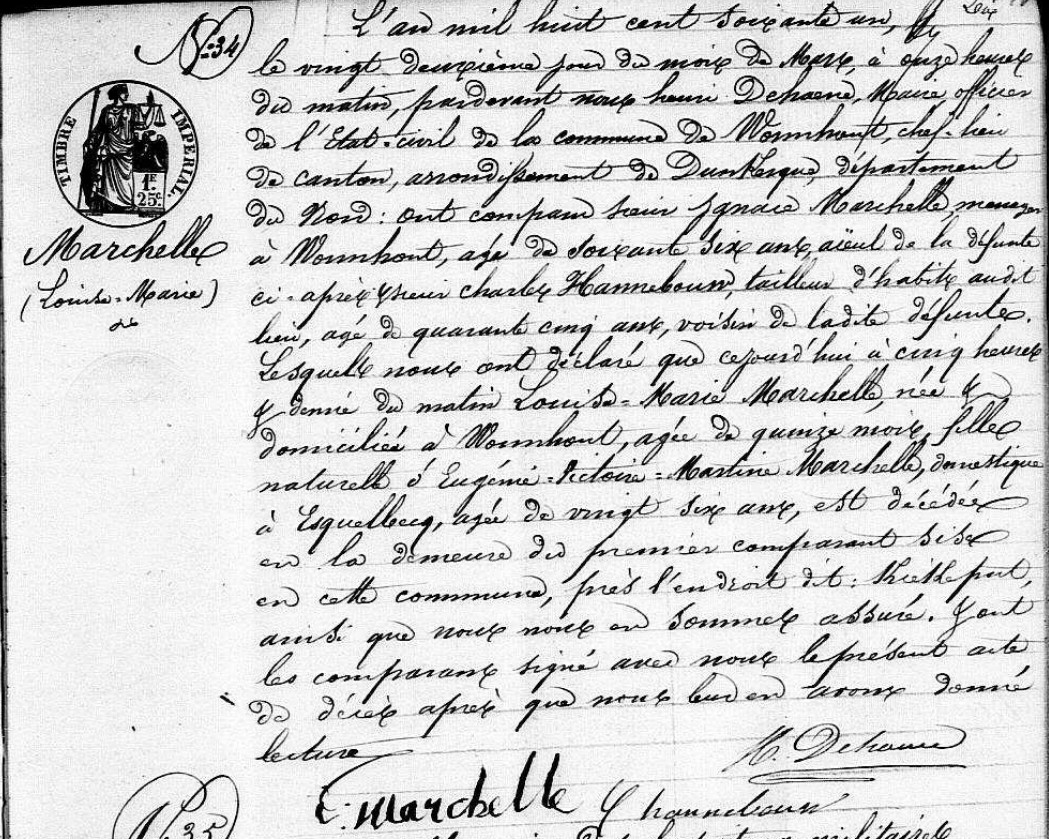 N.º 34
TIMBRE IMPERIAL.
1F.
25c.
Marchelle
(Louise-Marie)
L'an mil huit cent soixante un,
le vingt deuxième jour du mois de Mars, à onze heures
du matin, pardevant nous henri Dehaene, Maire, officier
de l'Etat-civil de la commune de Wormhout, chef-lieu
de canton, arrondissement de Dunkerque, département
du Nord: ont comparu sieur Ignace Marchelle, menager
à Wormhout, agé de soixante six ans, aïeul de la défunte
ci-après & sieur charles Hannebouw, tailleur d'habits audit
lieu, agé de quarante cinq ans, voisin de ladite défunte.
Lesquels nous ont déclaré que cejourd'hui à cinq heures
& demie du matin Louise-Marie Marchelle, née &
domiciliée à Wormhout, agée de quinze mois, fille
naturelle d'Eugénie-Victoire-Martine Marchelle, domestique
à Esquelbecq, agée de vingt six ans, est décédée
en la demeure du premier comparant sise
en cette commune, près l'endroit dit: Kiekeput,
ainsi que nous nous en sommes assuré. & ont
les comparans signé avec nous le présent acte
de décès après que nous leur en avons donné
lecture
H. Dehaene
Marchelle
Ch hannebouw
N.º 35